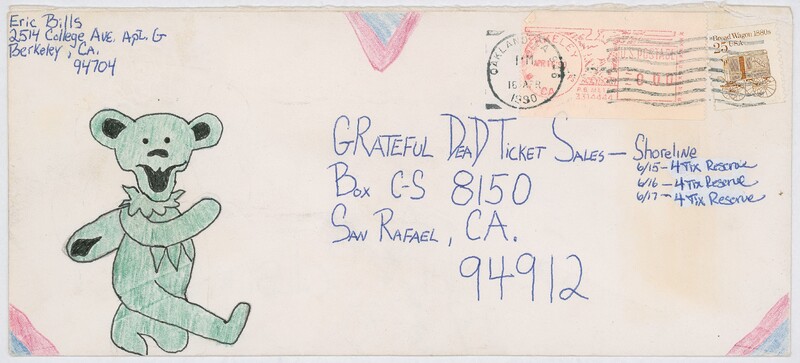 Eric Bills
2514 College Ave. Apt. G
Berkeley, CA.
94704
OAKLAND, CA
PM
16 APR
1990
BERKELEY
APR 1
CA
U.S. POSTAGE
Bread Wagon 1880s
25 USA
GRATEFUL DEAD TICKET SALES – Shoreline
6/15 – 4 Tix Reserve
6/16 – 4 Tix Reserve
6/17 – 4 Tix Reserve
Box C-S 8150
SAN RAFAEL, CA.
94912